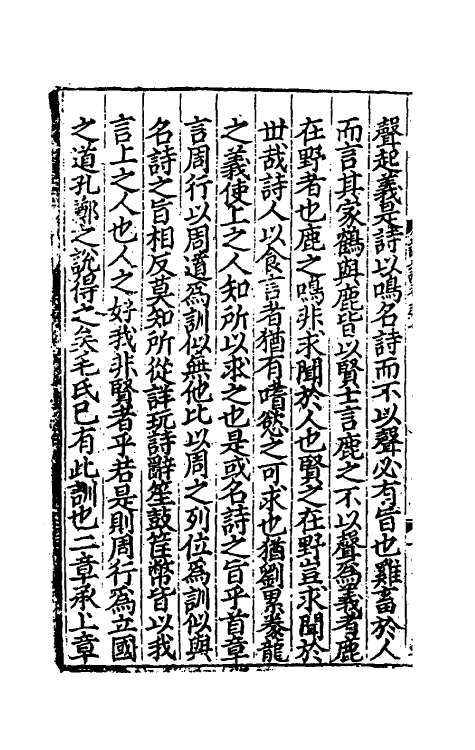 聲起義是詩以鳴名詩而不以聲必有旨也雞畜於人
而言其家鶴與鹿皆以賢士言鹿之不以聲為義者鹿
在野者也鹿之鳴非求聞於人也賢之在野豈求聞於
世哉詩人以食言者猶有嗜慾之可求也猶劉累豢龍
之義使上之人知所以求之也是或名詩之旨乎首章
言周行以周道為訓似無他比以周之列位為訓似與
名詩之旨相反莫知所從詳玩詩辭笙鼓筐幣皆以我
言上之人也人之好我非賢者乎若是則周行為立國
之道孔鄭之說得之矣毛氏已有此訓也二章承上章